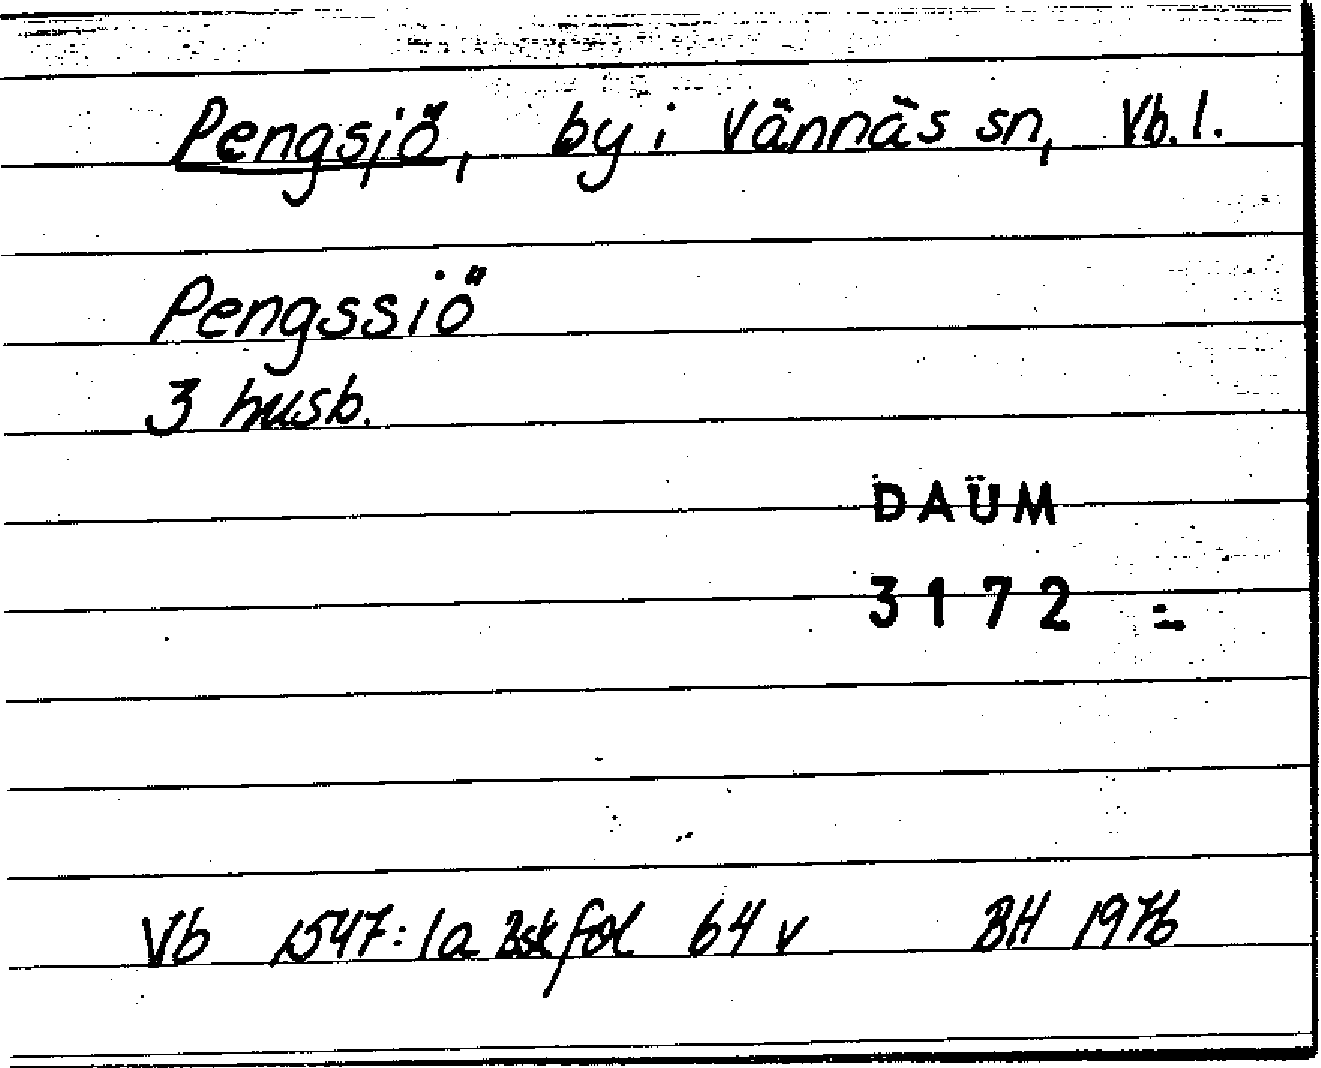 Pengsjö, by i Vännäs sn, Vb. l.
Pengssiö
3 husb.
DAÜM
3172 -
Vb 1547: 1a Bsk fol 64 v BH 1976